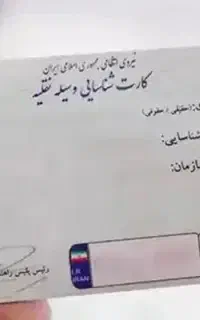 نیروی انتظامی جمهوری اسلامی ایران
کارت شناسایی وسیله نقلیه
(حقیقی / حقوقی):
شناسایی:
سازمان:
I.R.
IRAN
رئیس پلیس راهنما